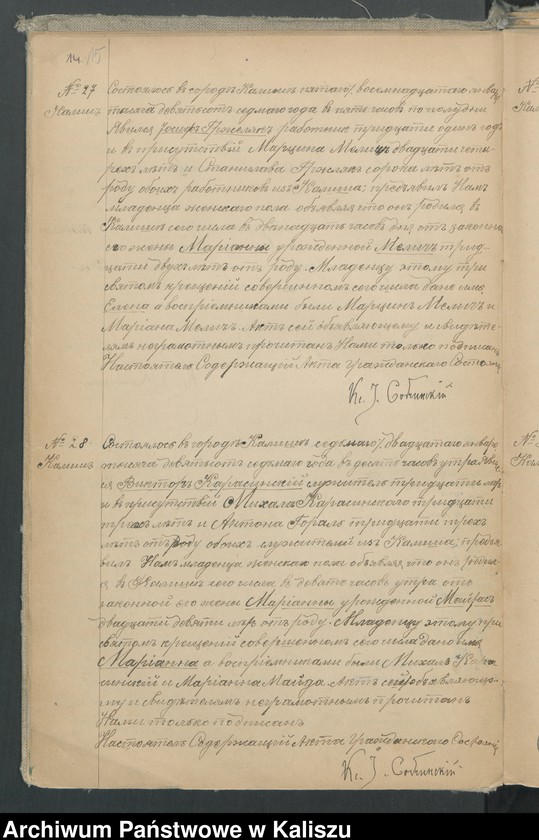 14. 15
№ 27
Калиш
Состоялось въ городѣ Калишѣ пятаго/восемнадцатаго Янва
тысяча девятьсотъ седьмаго года въ пять часовъ по полудни
Явился Іосифъ работникъ тридцати одинъ годъ
и въ присутствіи Марцина Мелихъ двадцати четы
рехъ лѣтъ и Станислава сорока лѣтъ отъ
роду обоихъ работниковъ изъ Калиша; предъявилъ Намъ
младенца женскаго пола объявляя что онъ родился въ
Калишѣ сего числа въ двѣнадцать часовъ дня отъ законной
его жены Маріанны урожденной Мелихъ трид-
цати двухъ лѣтъ отъ роду. Младенцу этому при
святомъ крещеніи совершенномъ сего числа дано имя
Елена а воспріемниками были Марцинъ Мелихъ и
Маріана Мелихъ. Актъ сей объявляющему и свидѣте-
лямъ неграмотнымъ прочитанъ Нами только подписанъ
Настоятель Содержащій Акты Гражданскаго Состоянія
Кс. І.
№ 28
Калишъ
Состоялось въ городѣ Калишѣ седьмаго/двадцатаго Января
тысяча девятьсотъ седьмаго года въ десять часовъ утра Яви
ся Викторъ Карасинскій служитель тридцати
и въ присутствіи Михала Карасинскаго тридцати
трехъ лѣтъ и Антона Гораль тридцати трехъ
лѣтъ отъ роду обоихъ служителей изъ Калиша; предъя
вилъ Намъ младенца женскаго пола объявляя что онъ родил
ся въ Калишѣ сего числа въ девять часовъ утра отъ
законной его жены Маріанны урожденной
двадцати девяти лѣтъ отъ роду. Младенцу этому при
святомъ крещеніи совершенномъ сего числа дано имя
Маріанна а воспріемниками были Михалъ Кара
синскій и Маріанна Майда. Актъ сей объявляюще-
му и свидѣтелямъ неграмотнымъ прочитанъ
Нами только подписанъ
Настоятель Содержащій Акты Гражданскаго Состоянія
Кс. І.
Archiwum Państwowe w Kaliszu